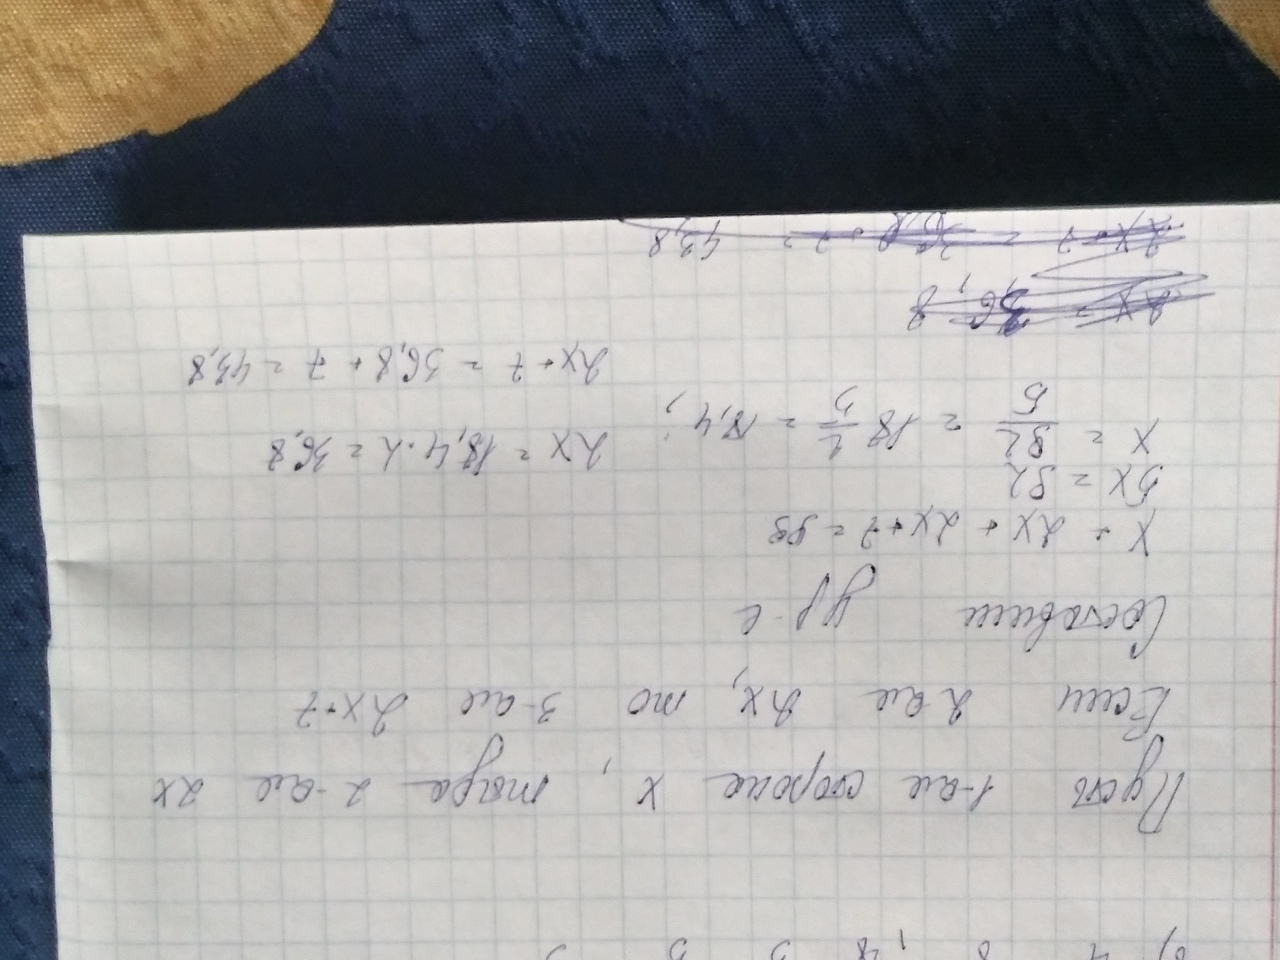 Пусть 1-ая сторона x, тогда 2-ая 2x
Если 2-ая 2x, то 3-ая 2x+7
Составим ур-е
x + 2x + 2x+7=99
5x = 92
x = 92/5 = 18 2/5 = 18,4;
2x = 18,4·2=36,8
2x+7 = 36,8+7=43,8
2x = 36,8
2x+7 = 36,8 + 7 = 43,8